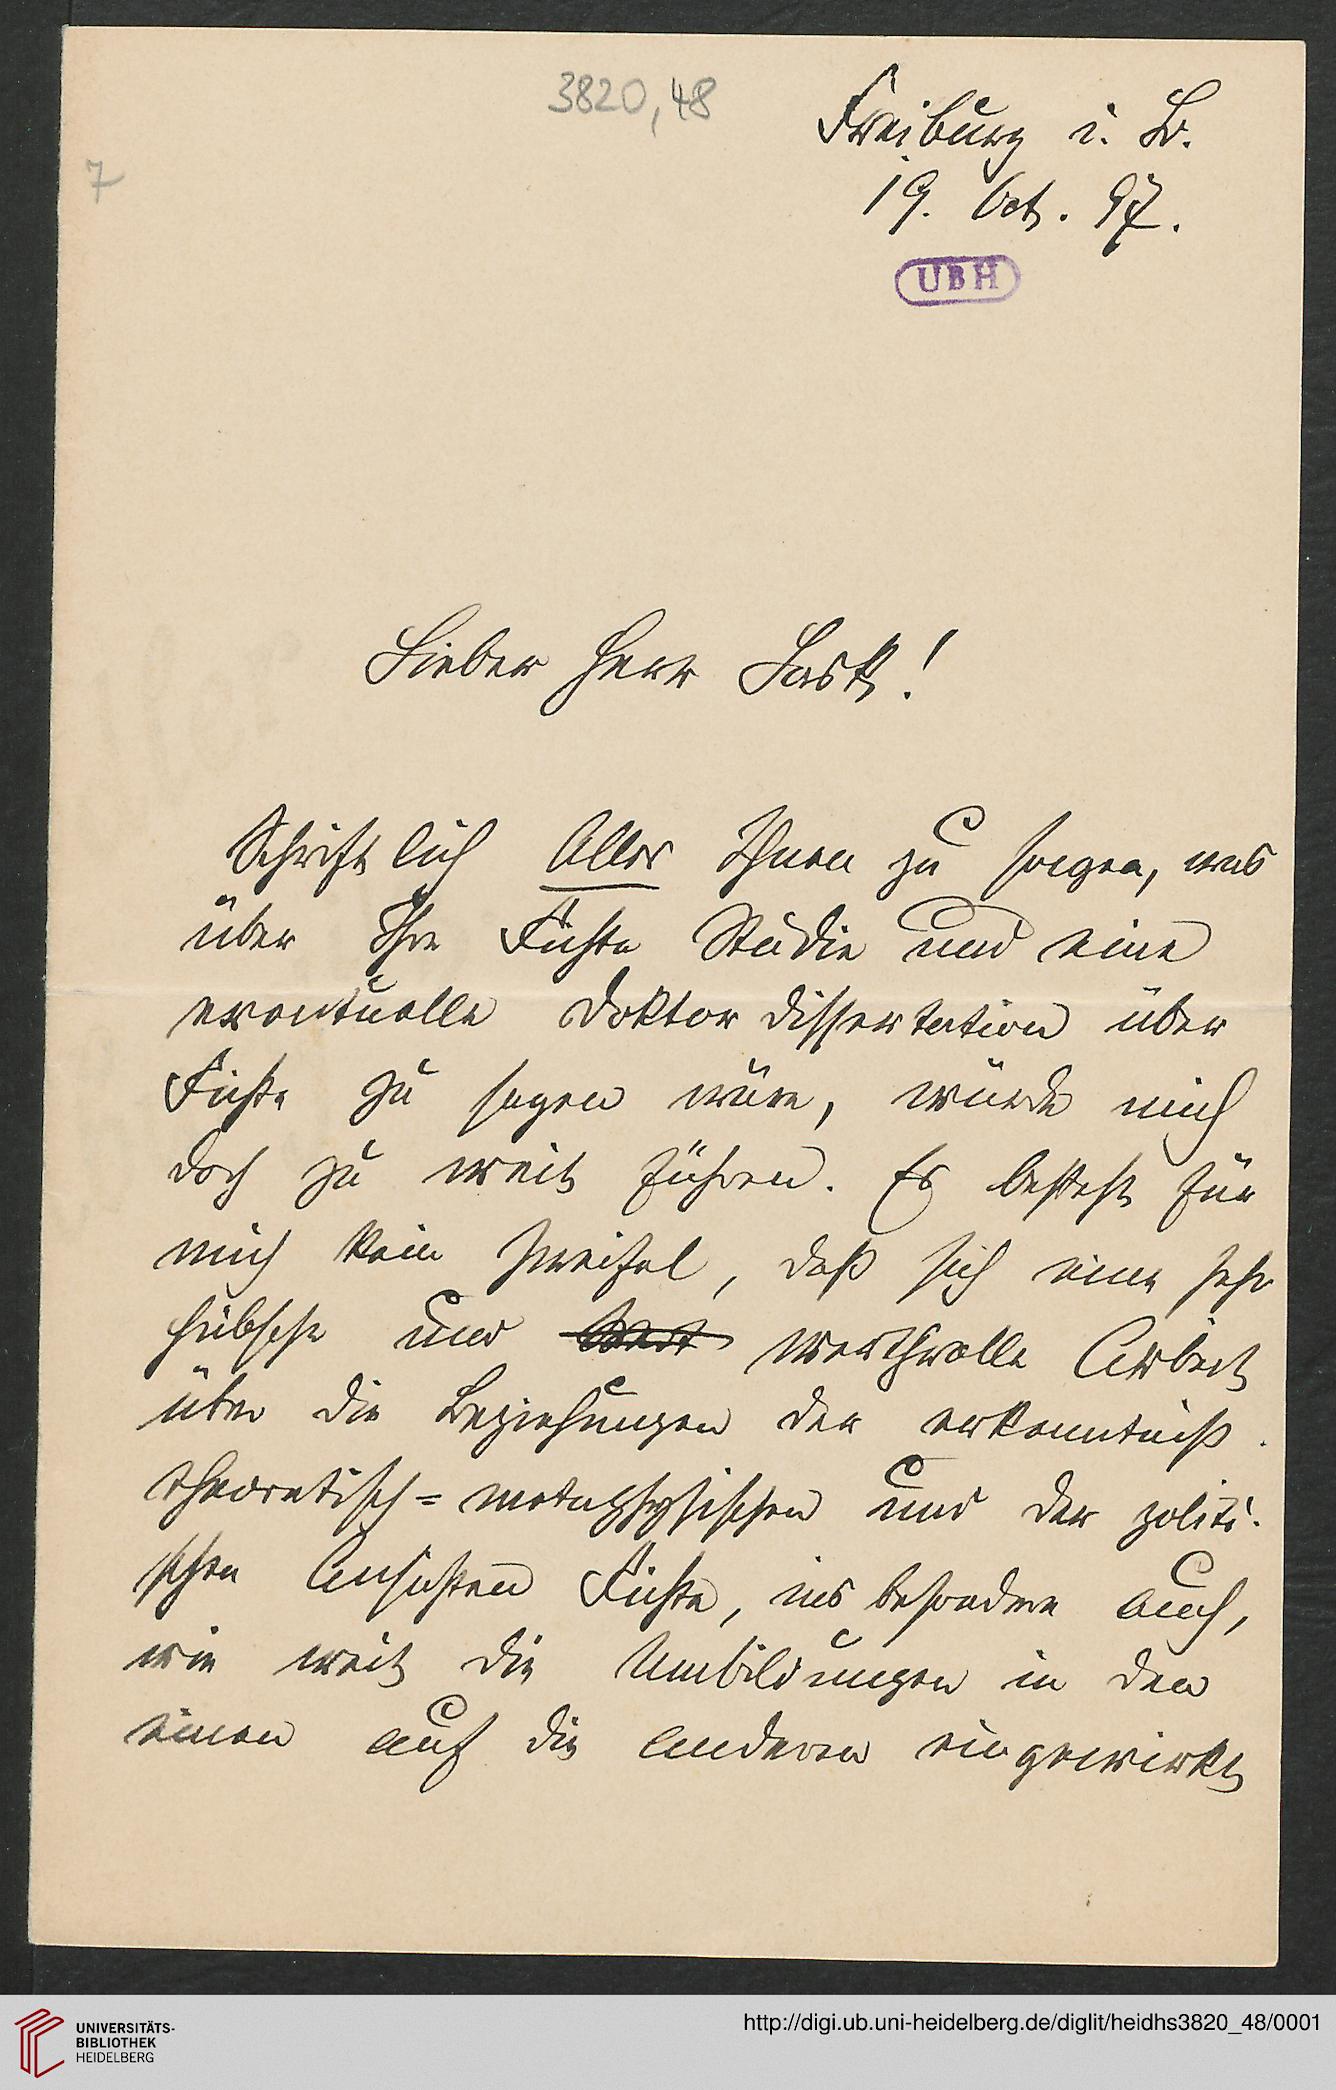 3820,48
7
Freiburg i. B.
19. Oct. 97.
UBH
Lieber Herr Lask!
Schriftlich Alles Ihnen zu sagen, was
über Ihre Fichte Studie und eine
eventuelle Doktordissertation über
Fichte zu sagen wäre, würde mich
doch zu weit führen. Es besteht für
mich kein Zweifel, daß sich eine sehr
hübsche und werthvolle Arbeit
über die Beziehungen der erkenntniß-
theoretisch=metaphysischen und der politi-
schen Ansichten Fichte, insbesondere auch,
wie weit die Umbildungen in den
einen auf die anderen eingewirkt
UNIVERSITÄTS-
BIBLIOTHEK
HEIDELBERG
http://digi.ub.uni-heidelberg.de/diglit/heidhs3820_48/0001